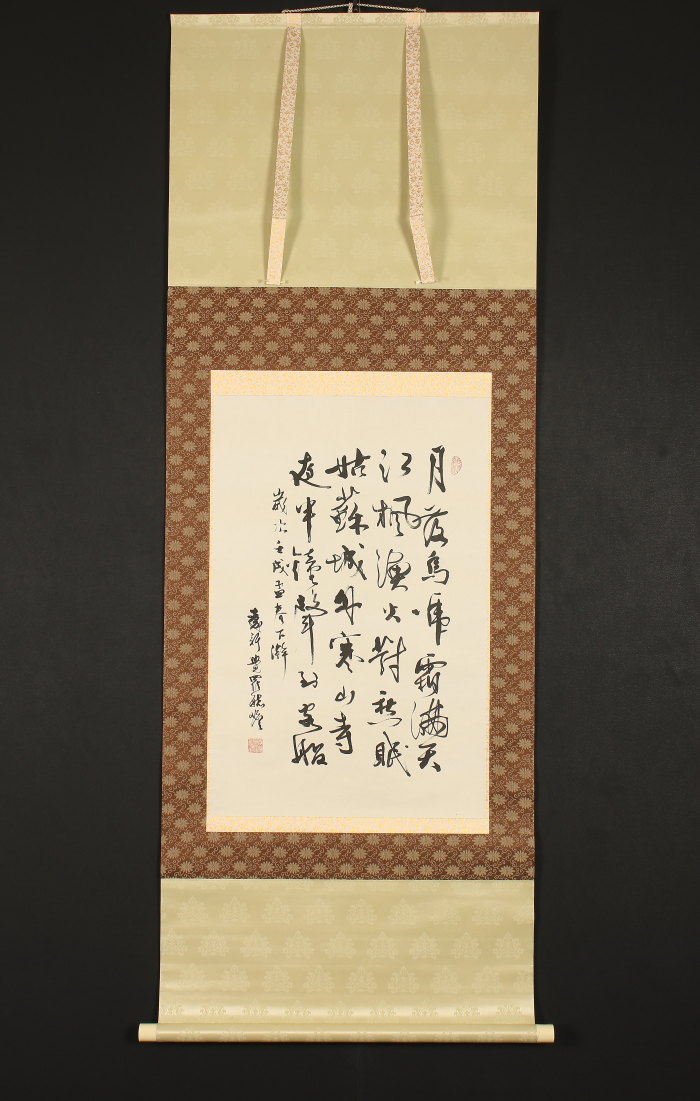 月落烏啼霜滿天
江楓漁火對愁眠
姑蘇城外寒山寺
夜半鐘聲到客船
歲次壬戌孟春下澣